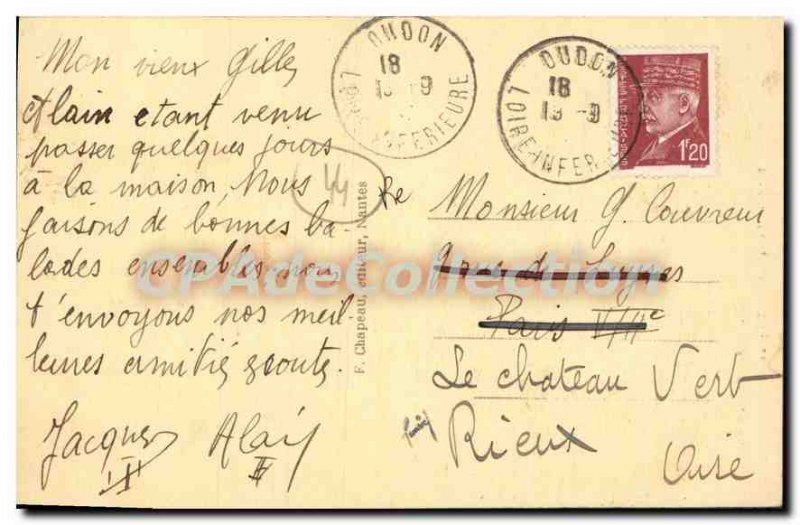 Mon vieux Gilles
Alain etant venu
passer quelques jours
à la maison, Nous
faisons de bonnes ba-
lades ensembles, nous
t'envoyons nos meil-
leures amitiés scoute.
Jacques Alain
44
F. Chapeau, éditeur, Nantes
OUDON
18
19 -9
LOIRE INFERIEURE
OUDON
18
19 -9
LOIRE INFERIEURE
1F20
Monsieur G. Couvreur
Paris VIIe
Le chateau Vert
Rieux
Oise
CPAdeCollection